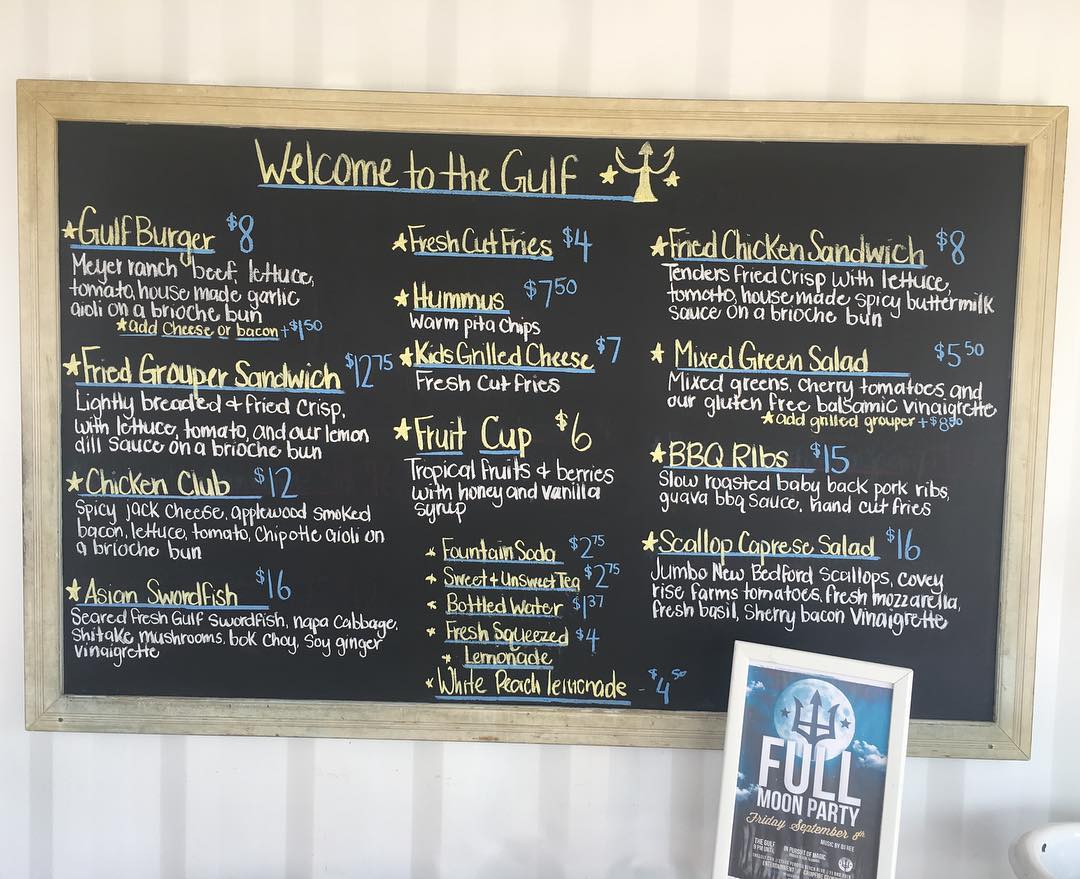 Welcome to the Gulf
Gulf Burger $8
Meyer ranch beef, lettuce,
tomato, house made garlic
aioli on a brioche bun
add cheese or bacon +$1.50
Fried Grouper Sandwich $12.75
Lightly breaded & fried crisp,
with lettuce, tomato, and our lemon
dill sauce on a brioche bun
Chicken Club $12
Spicy jack cheese, applewood smoked
bacon, lettuce, tomato, Chipotle aioli on
a brioche bun
Asian Swordfish $16
Seared fresh Gulf swordfish, napa cabbage,
shitake mushrooms, bok choy, soy ginger
vinaigrette
Fresh Cut Fries $4
Hummus $7.50
Warm pita chips
Kids Grilled Cheese $7
Fresh Cut fries
Fruit Cup $6
Tropical fruits & berries
with honey and vanilla
syrup
Fountain Soda $2.75
Sweet & Unsweet Tea $2.75
Bottled Water $1.37
Fresh Squeezed $4
Lemonade
White Peach lemonade - $4.50
Fried Chicken Sandwich $8
Tenders fried crisp with lettuce,
tomato, house made spicy buttermilk
sauce on a brioche bun
Mixed Green Salad $5.50
Mixed greens, cherry tomatoes and
our gluten free balsamic vinaigrette
add grilled grouper +$8.50
BBQ RIbs $15
Slow roasted baby back pork ribs,
guava bbq sauce, hand cut fries
Scallop Caprese Salad $16
Jumbo New Bedford Scallops, covey
rise farms tomatoes, fresh mozzarella,
fresh basil, Sherry bacon Vinaigrette
FULL
MOON PARTY
Friday September 8th
THE GULF
IN PURSUIT OF MAGIC
MUSIC BY DJ REE